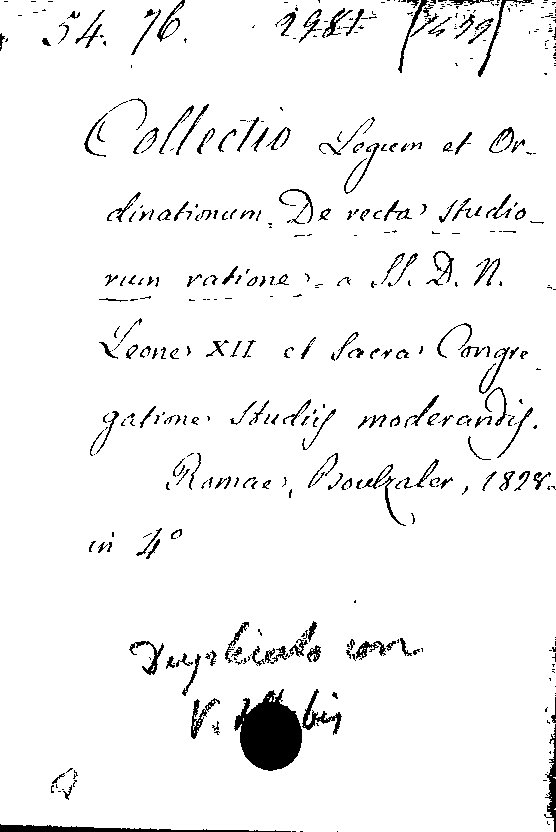 54. 76. 2981
Collectio Legum et Or-
dinationum. De recta studio-
rum ratione, a SS. D. N.
Leone XII et Sacra Congre
gatione Studiis moderandis.
Romae, Boulzaler, 1828.
in 4°
Duplicato con
V. bis